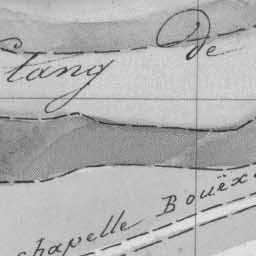 de
tang
chapelle Bouëx